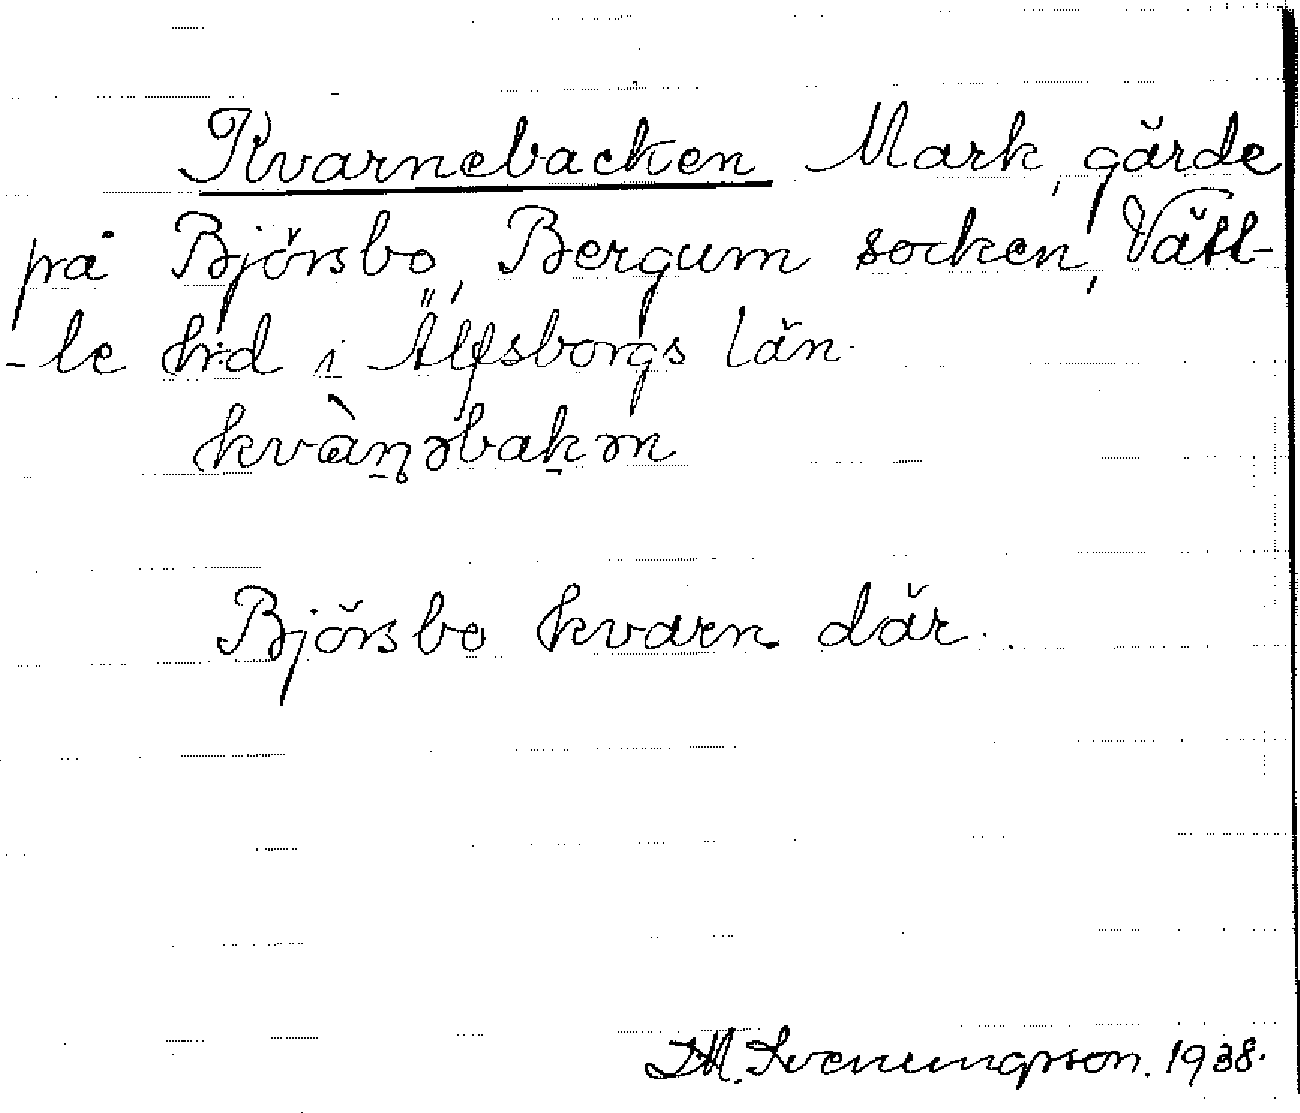 Kvarnebacken Mark, gärde
på Björsbo, Bergum socken, Vätt-
-le hrd i Älfsborgs län.
kvàn̠əbak̠ən
Björsbo kvarn där.
J.M. Svenungsson. 1938.